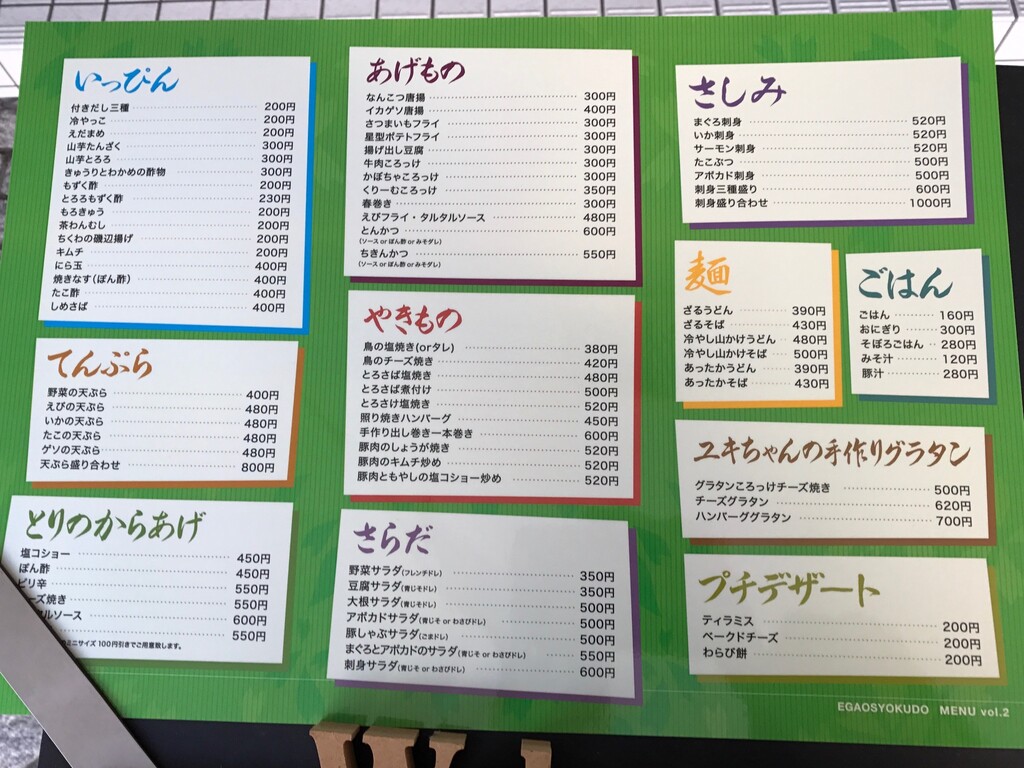 いっぴん
付きだし三種 200円
冷やっこ 200円
えだまめ 200円
山芋たんざく 300円
山芋とろろ 300円
きゅうりとわかめの酢物 300円
もずく酢 200円
とろろもずく酢 230円
もろきゅう 200円
茶わんむし 200円
ちくわの磯辺揚げ 200円
キムチ 200円
にら玉 400円
焼きなす(ぽん酢) 400円
たこ酢 400円
しめさば 400円
てんぷら
野菜の天ぷら 400円
えびの天ぷら 480円
いかの天ぷら 480円
たこの天ぷら 480円
ゲソの天ぷら 480円
天ぷら盛り合わせ 800円
とりのからあげ
塩コショー 450円
ぽん酢 450円
ピリ辛 550円
ーズ焼き 550円
ルソース 600円
550円
ミニサイズ 100円引きでご用意致します。
あげもの
なんこつ唐揚 300円
イカゲソ唐揚 400円
さつまいもフライ 300円
星型ポテトフライ 300円
揚げ出し豆腐 300円
牛肉ころっけ 300円
かぼちゃころっけ 300円
くりーむころっけ 350円
春巻き 300円
えびフライ・タルタルソース 480円
とんかつ 600円
(ソース or ぽん酢 or みそダレ)
ちきんかつ 550円
(ソース or ぽん酢 or みそダレ)
やきもの
鳥の塩焼き(orタレ) 380円
鳥のチーズ焼き 420円
とろさば塩焼き 480円
とろさば煮付け 500円
とろさけ塩焼き 520円
照り焼きハンバーグ 450円
手作り出し巻き一本巻き 600円
豚肉のしょうが焼き 520円
豚肉のキムチ炒め 520円
豚肉ともやしの塩コショー炒め 520円
さらだ
野菜サラダ(フレンチドレ) 350円
豆腐サラダ(青じそドレ) 350円
大根サラダ(青じそドレ) 500円
アボカドサラダ(青じそ or わさびドレ) 500円
豚しゃぶサラダ(ごまドレ) 500円
まぐろとアボカドのサラダ(青じそ or わさびドレ) 550円
刺身サラダ(青じそ or わさびドレ) 600円
さしみ
まぐろ刺身 520円
いか刺身 520円
サーモン刺身 520円
たこぶつ 500円
アボカド刺身 500円
刺身三種盛り 600円
刺身盛り合わせ 1000円
麺
ざるうどん 390円
ざるそば 430円
冷やし山かけうどん 480円
冷やし山かけそば 500円
あったかうどん 390円
あったかそば 430円
ごはん
ごはん 160円
おにぎり 300円
そぼろごはん 280円
みそ汁 120円
豚汁 280円
ユキちゃんの手作りグラタン
グラタンころっけチーズ焼き 500円
チーズグラタン 620円
ハンバーググラタン 700円
プチデザート
ティラミス 200円
ベークドチーズ 200円
わらび餅 200円
EGAOSYOKUDO MENU vol.2